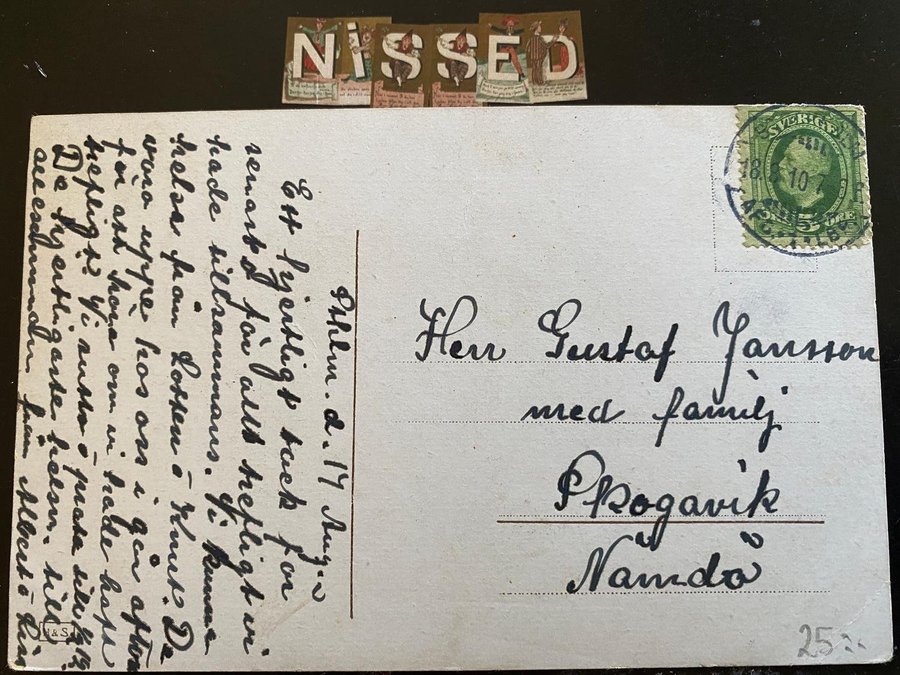 NISSED
SVERIGE
5 ÖRE
18. 8. 10
Sthlm. d. 17 Aug.
Ett hjertligt tack for
senast å för allt trefligt vi
hade tillsammans. Vi kunna
helsa från Lotten å Knut. De
voro uppe hos oss i går afton
för att höra om vi hade haft
trefligt. Vi sutto å prata till ½12.
De hjertligaste helsn. till
allesamman från Albert å
Herr Gustaf Jansson
med familj
Skogavik
Nämdö
H&S
25:-